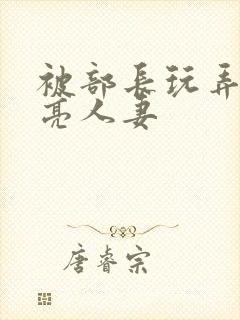 被部长玩弄
亮人妻
唐睿宗